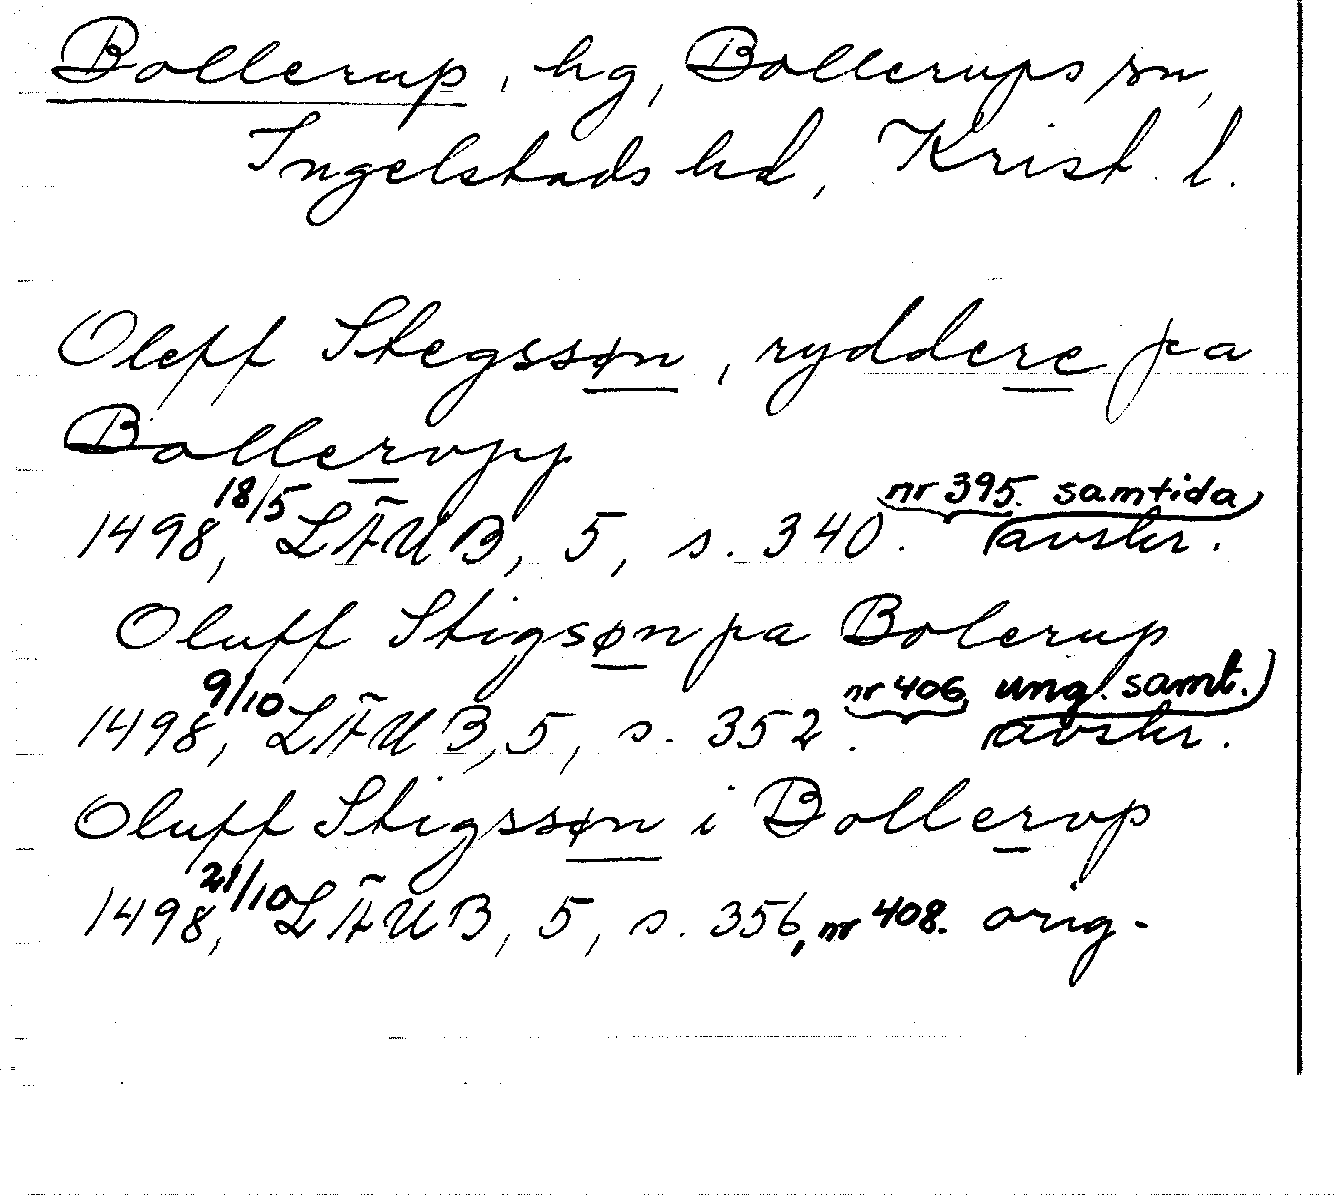 Bollerup, hg, Bollerups sn,
Ingelstads hd, Krist. l.
Oleff Stegssøn, ryddere pa
Bolleropp
1498, 18/5 LÄUB, 5, s. 340. nr 395. samtida avskr.
Oluff Stigsøn pa Bolerup
1498, 9/10 LÄUB, 5, s. 352. nr 406 ung. samt. avskr.
Oluff Stigssøn i Bollerop
1498, 21/10 LÄUB, 5, s. 356, nr 408. orig.